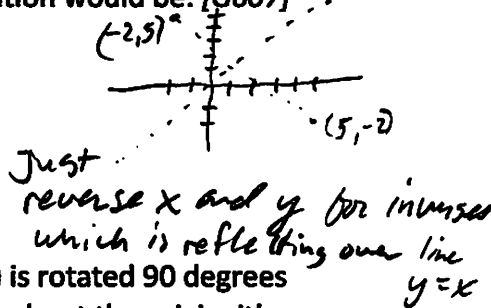 (-2,5)
(5,-2)
Just
reverse x and y for inverses
which is reflecting over line
y=x
is rotated 90 degrees